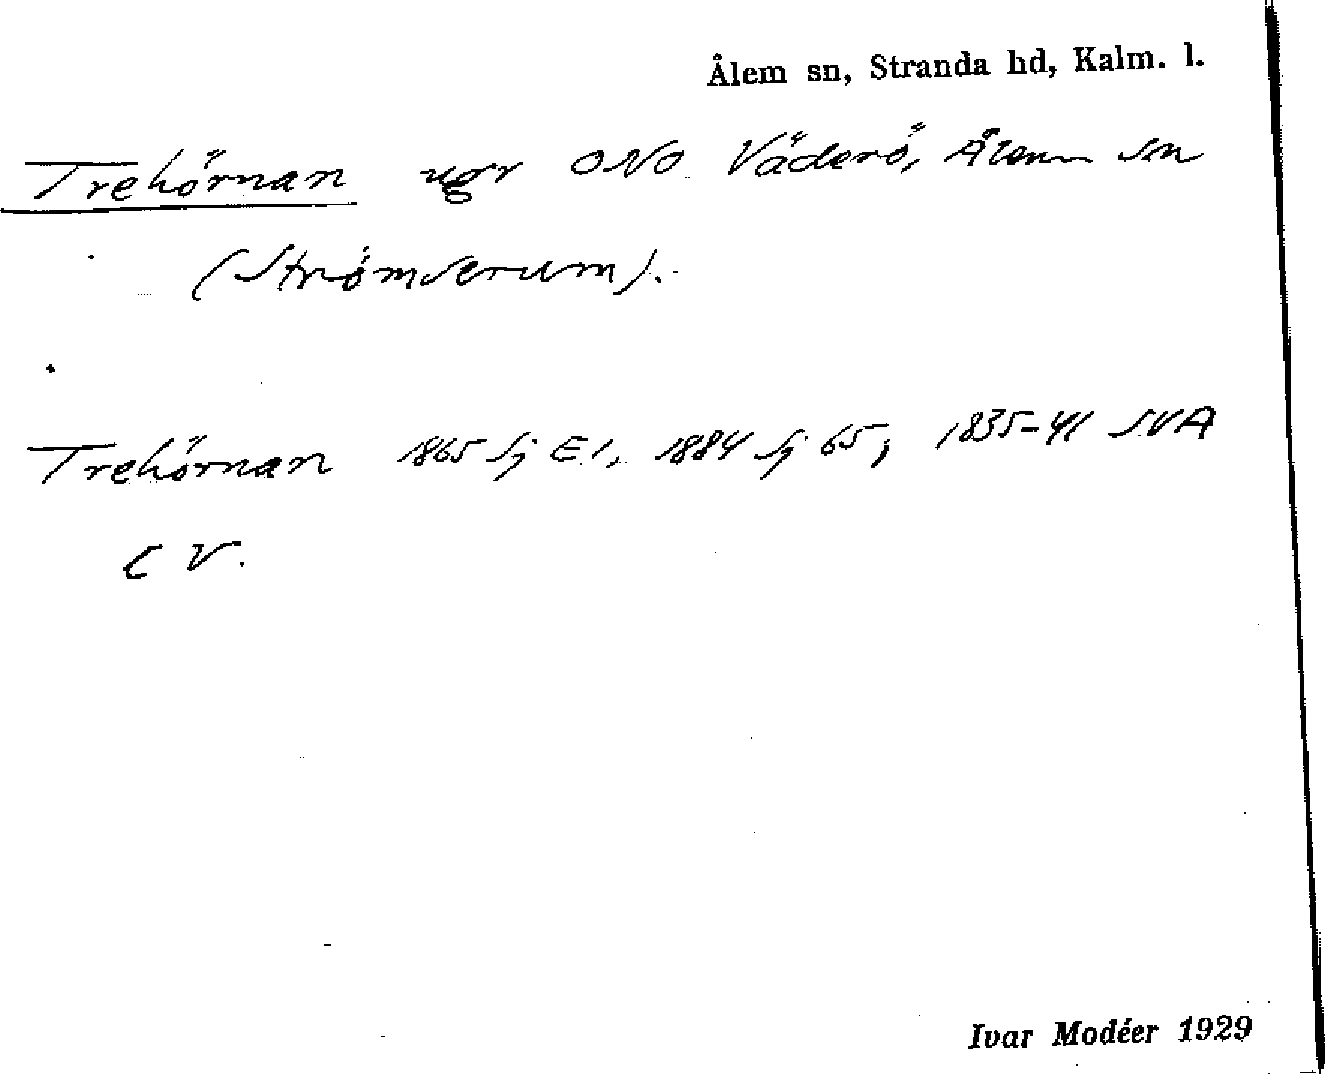 Ålem sn, Stranda hd, Kalm. l.
Trehörnan ugr ONO Väderö, Ålem sn
(Strömserum).
Trehörnan 1865 Sj E1, 1884 Sj 65, 1835-41 SVA
C V.
Ivar Modéer 1929